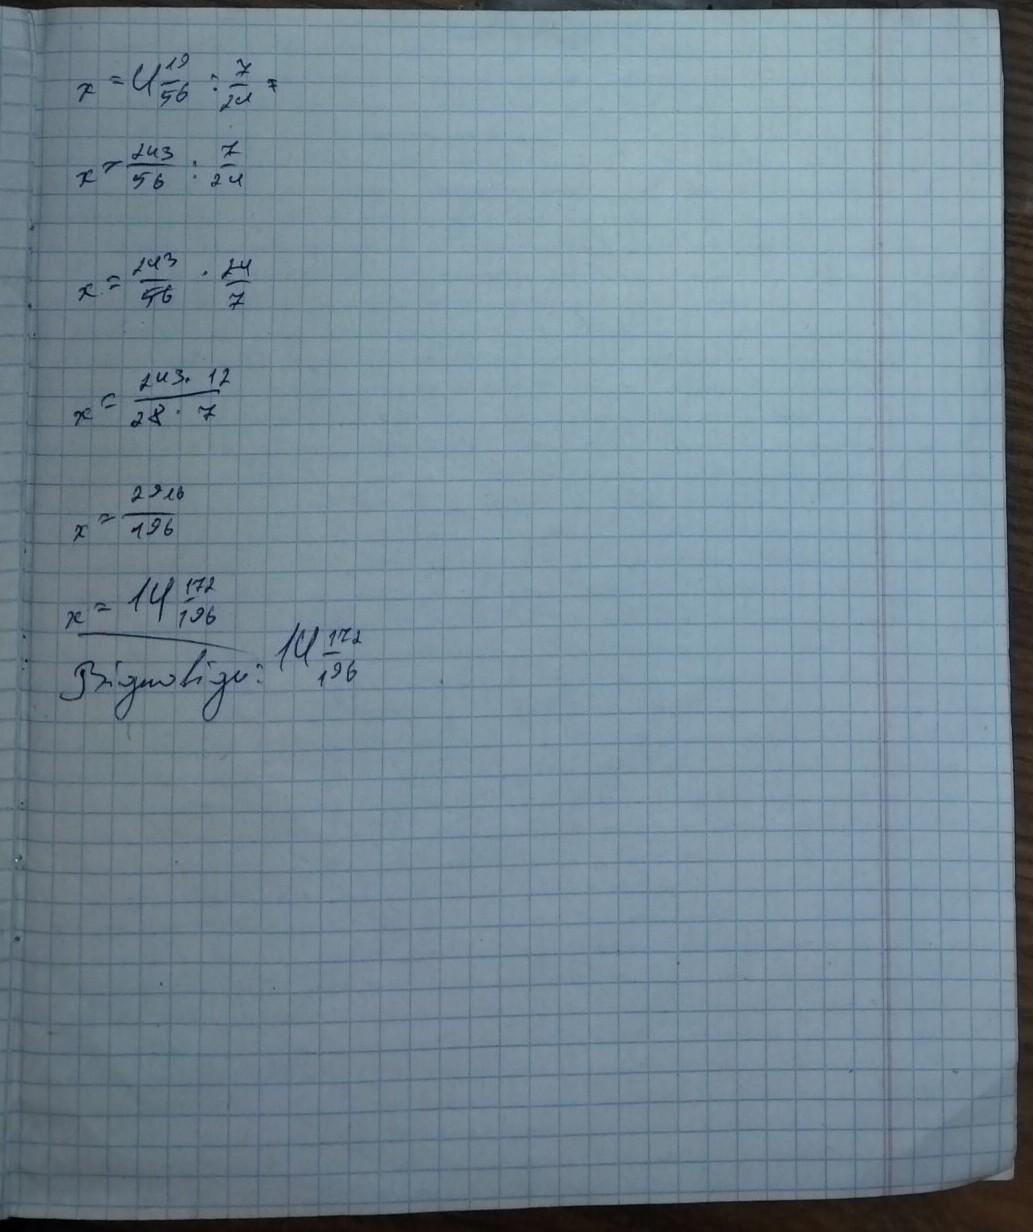 x = 4 19/56 : 7/24 =
x = 243/56 : 7/24
x = 243/56 · 24/7
x = 243 · 12 / 28 · 7
x = 2916/196
x = 14 172/196
Відповідь: 14 172/196